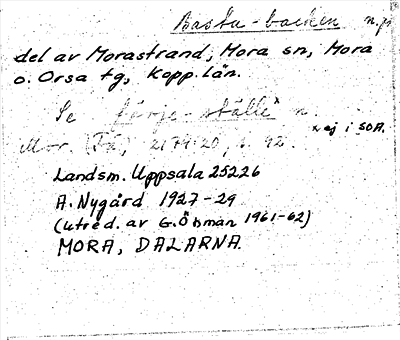 Basta-backen n.pr
del av Morastrand, Mora sn, Mora
o. Orsa tg, Kopp. län.
Se färje-ställe n.
x ej i SOA.
M-r. 2174:20, s. 92.
Landsm. Uppsala 25226
A. Nygård 1927-29
(utred. av G. Öhman 1961-62)
MORA, DALARNA.